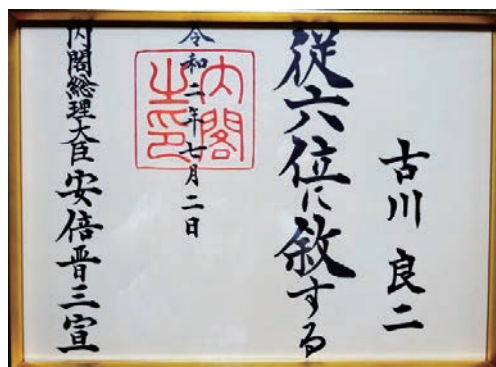 古川良二
従六位に敘する
令和二年七月二日
内閣之印
内閣総理大臣安倍晋三宣